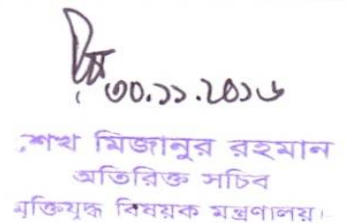 ৩০.১১.২০১৬
শেখ মিজানুর রহমান
অতিরিক্ত সচিব
মুক্তিযুদ্ধ বিষয়ক মন্ত্রণালয়।